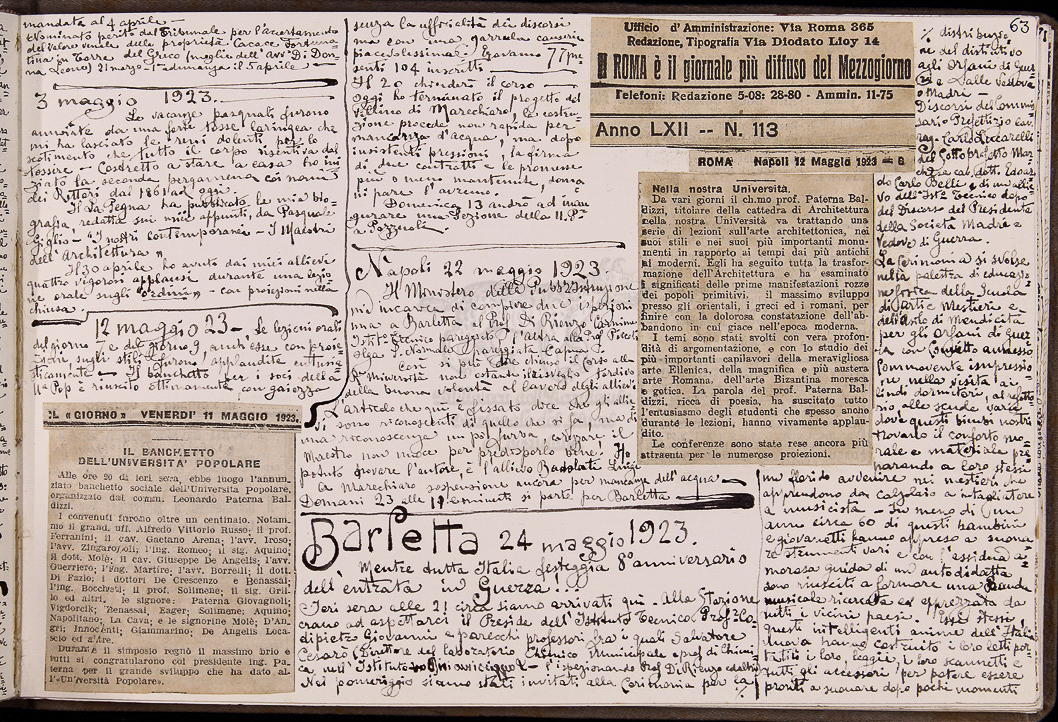 63
mandata al 4 aprile -
Nominato perito del Tribunale per l'accertamento
del valore venale delle proprietà Cacace Fortuna-
ta in Torre del Greco (moglie dell'avv. Di Don-
na Leone) 21 marzo - 1ª adunanza il 5 aprile -
3 maggio 1923.
Le vacanze pasquali furono
annoiate da una forte tosse laringea che
mi ha lasciato le reni dolenti per lo
scotimento che tutto il corpo risentiva dal
tossire. Costretto a stare a casa ho ini
ziato la seconda pergamena coi nomi
dei Rettori dal 1861 ad oggi.
Il La Pegna ha pubblicato le mia bio-
grafia, redatta sui miei appunti, da Pasquale
Giglio - "I nostri contemporanei - I Maestri
dell'Architettura".
Il 30 aprile ho avuto dai miei allievi
quattro vigorosi applausi durante una lezio
ne orale sugli "ordini" - con proiezioni nella
chiusa.
12 maggio 23 - Le lezioni orali
del giorno 7 e del giorno, anch'esse con proie
zioni, sugli stili furono applaudite entusia
sticamente - Il banchetto per i soci della
U Pop è riuscito ottimamente con gaiezza
IL «GIORNO» VENERDI' 11 MAGGIO 1923.
IL BANCHETTO
DELL'UNIVERSITA' POPOLARE
Alle ore 20 di ieri sera, ebbe luogo l'annun
ziato banchetto sociale dell'Università Popolare,
organizzato dal comm. Leonardo Paterna Bal
dizzi.
I convenuti furono oltre un centinaio. Notam.
mo il grand. uff. Alfredo Vittorio Russo; il prof.
Ferranini; il cav. Gaetano Arena; l'avv. Iroso;
l'avv. Zingaropoli; l'ing. Romeo; il sig. Aquino;
il dott. Molè; il cav. Giuseppe De Angelis; l'avv.
Guerriero; l'ing. Martire; l'avv. Borrelli; il dott.
Di Fazio; i dottori De Crescenzo e Benassai;
l'ing. Bocchetti; il prof. Solimene; il sig. Gril-
lo ed altri, le signore: Paterna Giovagnoli;
Vigdorcik; Benassai; Eager; Solimene; Aquino;
Napolitano; La Cava; e le signorine Molè; D'An-
gri; Innocenti; Giammarino; De Angelis Loca-
scio ed altre.
Durante il simposio regnò il massimo brio e
tutti si congratularono col presidente ing. Pa-
terna per il grande sviluppo che ha dato al-
l'«Università Popolare».
senza la ufficialità dei discorsi
ma con una garrula causerie
piacevolissima. Eravamo 77 pre
senti 104 inscritti.
Il 20 chiuderò il corso -
Oggi ho terminato il progetto del
Villino di Marechiaro, la costru-
zione procede non rapida per
mancanza d'acqua, ma dopo
insistenti pressioni, la firma
di due contratti, le promesse
più o meno mantenute, doma
ni pare l'avremo.
Domenica 13 andrò ad inau
gurare una Sezione della U. P.
a Pozzuoli.
Napoli 22 maggio 1923
Il Ministero della Pubb. Istruzione
mi incarica di compiere due ispezioni
una a Barletta al Prof. Di Rienzo Carmine
Istit. Tecnico pareggiato, l'altra alla Prof. Piccoli
Olga R. Normale pareggiata Capua -
Con si può dire chiuso il corso alla
R. Università nonostante il risveglio tardivo
della volontà al lavoro degli allievi
L'articolo che qui è fissato dice che gli allie
vi sono riconoscenti di quello che si fa, ma di
una riconoscenza un po' furba, coprire il
Maestro non nuoce per predisporlo bene. Ho
potuto sapere l'autore, è l'allievo Badolato Luigi
A Marechiaro sospensione ancora per mancanza dell'acqua -
Domani 23 alle 11 antimeridi si parte per Barletta
Barletta 24 maggio 1923.
Mentre tutta Italia festeggia 8º anniversario
dell'entrata in Guerra!
Ieri sera alle 21 circa siamo arrivati qui. Alla Stazione
erano ad aspettarci il Preside dell'Istituto Tecnico Prof. Lo-
dipietro Giovanni e parecchi professori fra i quali Salvatore
Cesaro (Direttore del laboratorio Chimico Municipale e prof. di Chimi
ca nell'Istituto - l'ispezionando Prof. Di Rienzo ed altri
Nel pomeriggio siamo stati invitati alla Cerimonia per la %
Ufficio d'Amministrazione: Via Roma 365
Redazione, Tipografia Via Diodato Lloy 14
Il ROMA è il giornale più diffuso del Mezzogiorno
Telefoni: Redazione 5-08: 28-80 - Ammin. 11-75
Anno LXII -- N. 113
ROMA Napoli 12 Maggio 1923 = 8
Nella nostra Università.
Da vari giorni il ch.mo prof. Paterna Bal-
dizzi, titolare della cattedra di Architettura
nella nostra Università va trattando una
serie di lezioni sull'arte architettonica, nei
suoi stili e nei suoi più importanti monu-
menti in rapporto ai tempi dai più antichi
ai moderni. Egli ha seguito tutta la trasfor-
mazione dell'Architettura e ha esaminato
i significati delle prime manifestazioni rozze
dei popoli primitivi. il massimo sviluppo
presso gli orientali, i greci ed i romani, per
finire con la dolorosa constatazione dell'ab-
bandono in cui giace nell'epoca moderna.
I temi sono stati svolti con vera profondi-
tà di argomentazione, e con lo studio dei
più importanti capilavori della meravigliosa
arte Ellenica, della magnifica e più austera
arte Romana, dell'arte Bizantina moresca
e gotica. La parola del prof. Paterna Bal-
dizzi, ricca di poesia, ha suscitato tutto
l'entusiasmo degli studenti che spesso anche
durante le lezioni, hanno vivamente applau-
dito.
Le conferenze sono state rese ancora più
attraenti per le numerose proiezioni.
% distribuzio
ne del distintivo
agli Orfani di Guer
ra e alle Vedove
e Madri -
Discorsi del Commis
sario Prefettizio cav.
rag. Carlo Ceccarelli
del Sottoprefetto Mar
chese cav. dott. Edoar
do Carlo Belli, di un allie
vo dell'Ist. Tecnico dopo
del Discorso del Presidente
della Società Madri e
Vedove di Guerra.
La cerimonia si svolse
nella palestra di educazio
ne fisica della Scuola
di arti e Mestieri ed
dell'asilo di Mendicità
per gli Orfani di Guer
ra con Convitto annesso
Commovente impressio
ne nella visita ai
lindi dormitori, al refetto
rio alle scuole varie
dove questi bimbi nostri
trovano il conforto mo
rale e materiale pre
parando a loro stessi
un florido avvenire nei mestieri che
apprendono da calzolaio a intagliatore
a musicista - In meno di un
anno circa 60 di questi bambini
e giovanetti hanno appreso a suona
re strumenti vari e con l'assidua a-
morosa guida di un autodidatta
sono riusciti a formare una Banda
musicale ricercata ed apprezzata da
tutti i vicini paesi. Essi stessi,
questi intelligenti animi dell'Italia
nuova hanno costruito i loro letti por-
tatili i loro leggii, i loro scannetti e
tutti gli accessori per potere essere
pronti a suonare dopo pochi momenti